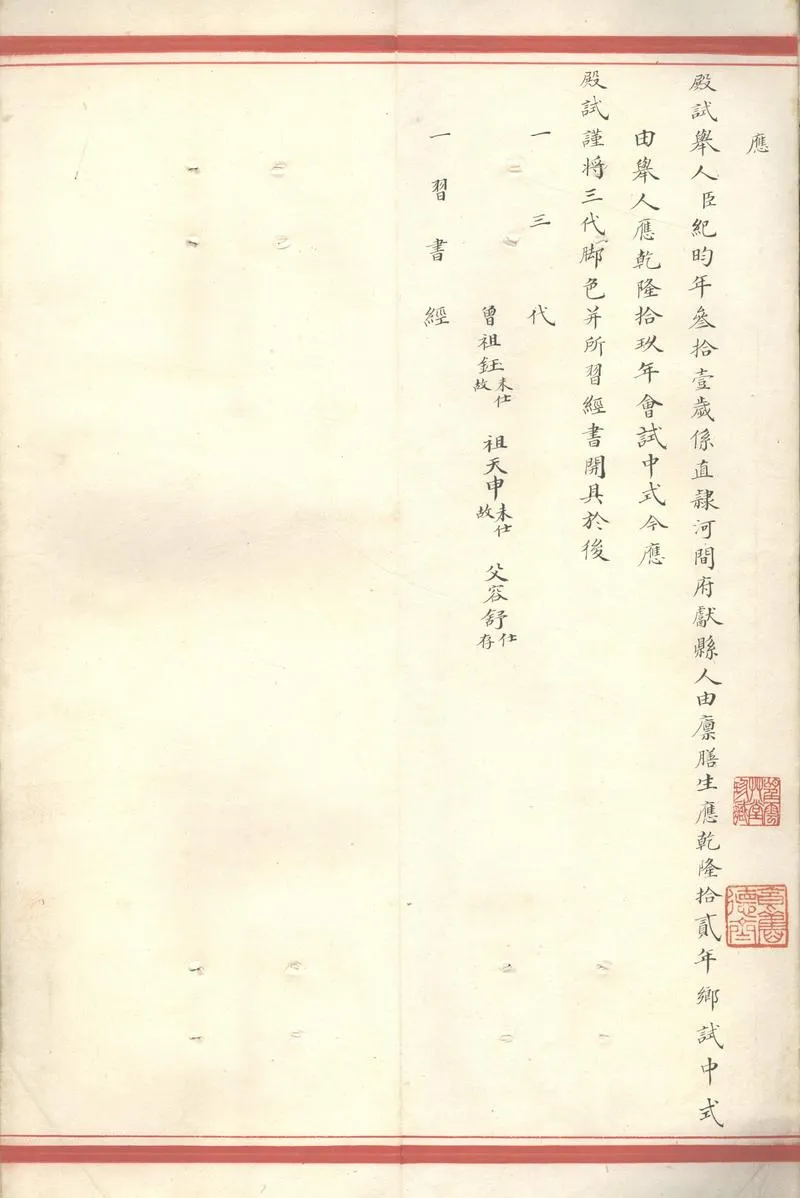 應
殿試舉人臣紀昀年叄拾壹歲係直隸河間府獻縣人由廩膳生應乾隆拾貳年鄉試中式
由舉人應乾隆拾玖年會試中式今應
殿試謹將三代脚色并所習經書開具於後
一三代
曾祖鈺未仕故 祖天申未仕故 父容舒仕存
一習書經